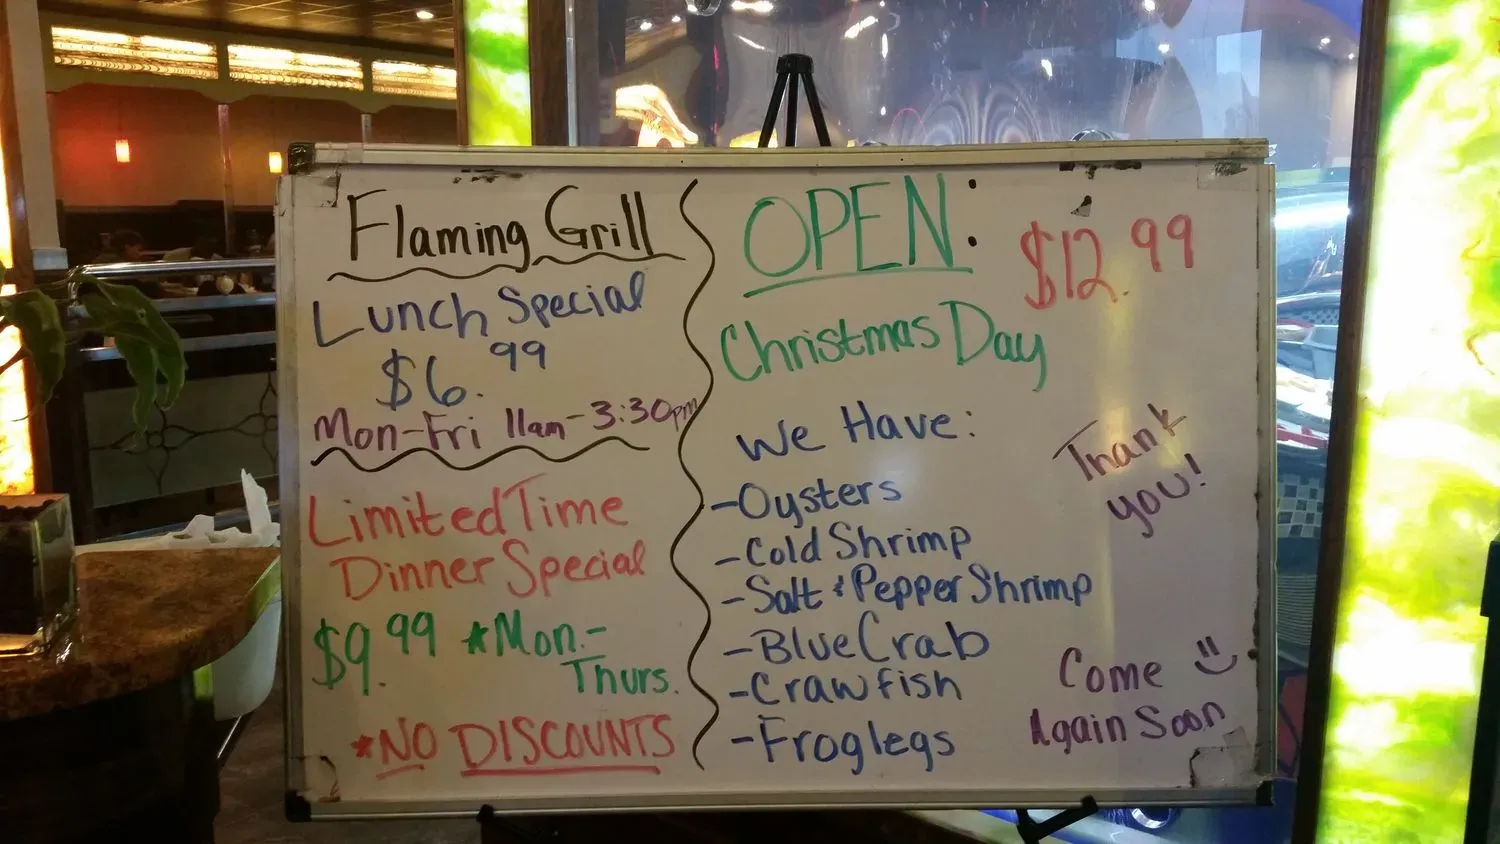 Flaming Grill
Lunch Special
$6.99
Mon-Fri 11am-3:30pm
Limited Time
Dinner Special
$9.99 *Mon.-
Thurs.
*NO DISCOUNTS
OPEN:
$12.99
Christmas Day
We Have:
-Oysters
-Cold Shrimp
-Salt & Pepper Shrimp
-Blue Crab
-Crawfish
-Froglegs
Thank
you!
Come
Again Soon